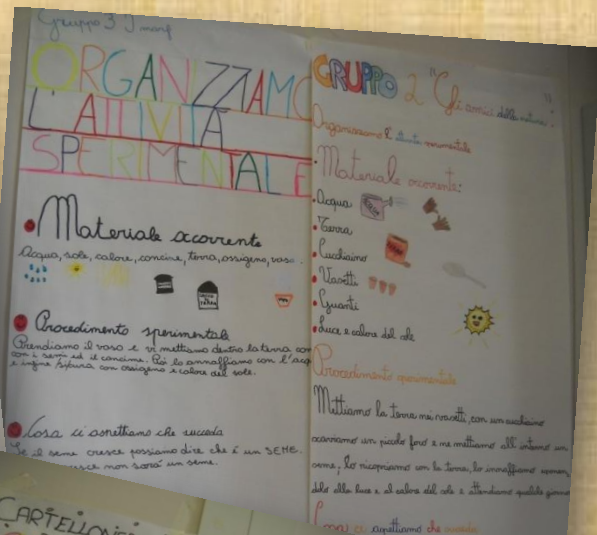 Gruppo 3 I
ORGANIZZIAMO
L'ATTIVITÀ
SPERIMENTALE
Materiale occorrente
Acqua, sole, calore, concime, terra, ossigeno, vaso.
Procedimento sperimentale
Prendiamo il vaso e vi mettiamo dentro la terra con
con i semi ed il concime. Poi lo annaffiamo con l'acq
e infine si cura con ossigeno e calore del sole.
Cosa ci aspettiamo che succeda
Se il seme cresce possiamo dire che è un SEME.
cresce non sarà un seme.
CARTELLONE
GRUPPO 2 "Gli amici della natura"
Organizziamo l'attività sperimentale
Materiale occorrente:
Acqua
Terra
Cucchiaino
Vasetti
Guanti
Luce e calore del sole
Procedimento sperimentale
Mettiamo la terra nei vasetti, con un cucchiaino
scaviamo un piccolo foro e ne mettiamo all'interno un
seme; lo ricopriamo con la terra, lo innaffiamo
dolo alla luce e al calore del sole e attendiamo qualche giorno
Cosa ci aspettiamo che succeda